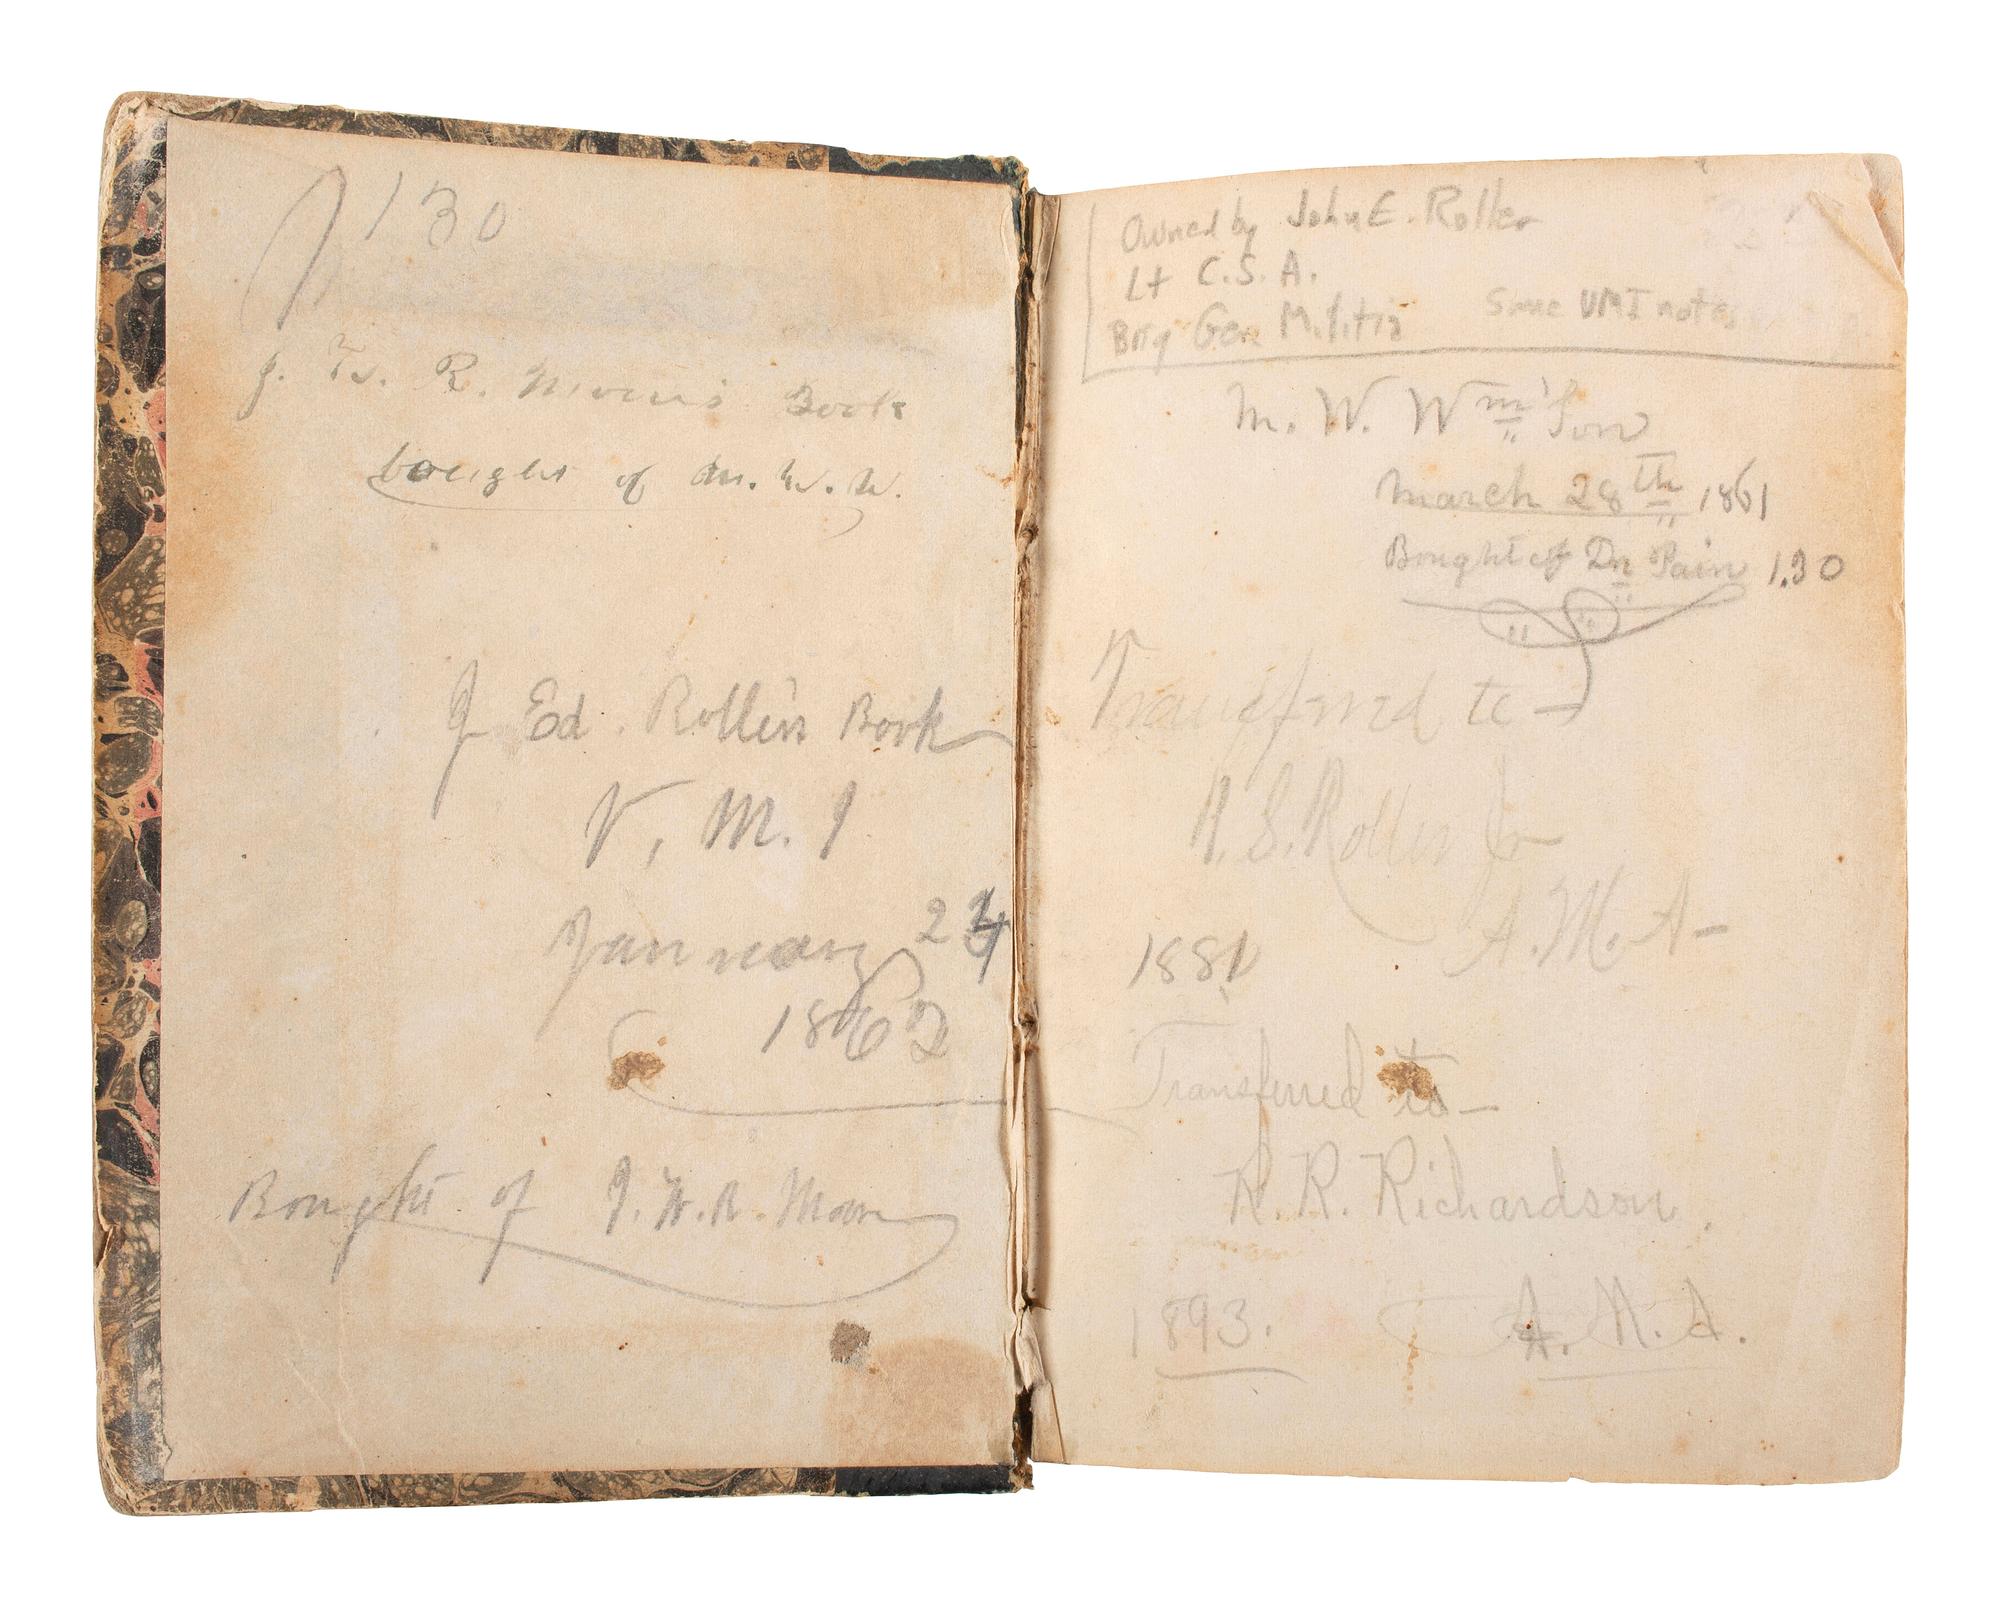 130
J. W. R. Moore's Book
bought of M. W. W.
J Ed. Roller's Book
V. M. I
January 24
1862
Bought of J. W. R. Moore
Owned by John E. Roller
Lt C.S.A.
Brig Gen Militia Some VMI notes
M. W. Wm'son
March 28th 1861
Bought of Dr Pain 1.30
Transferred to —
Roller Jr
A. M. A —
1881
Transferred to —
R. R. Richardson.
1893. A. M. A.